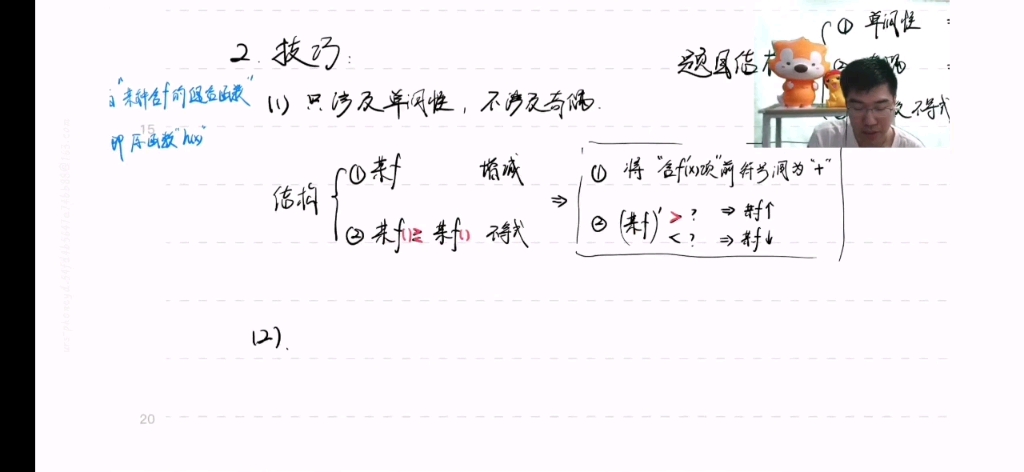 2. 技巧:
题目结
① 单调性
不等式
"某种含f的组合函数"
即 原函数"h(x)"
(1) 只涉及单调性, 不涉及奇偶.
15
结构
① 某f 增减
② 某f()≥ 某f() 不等式
⇒
① 将 "含f'(x)项"前符号调为"+"
② (某f)' > ? ⇒ 某f↑
< ? ⇒ 某f↓
(2).
20